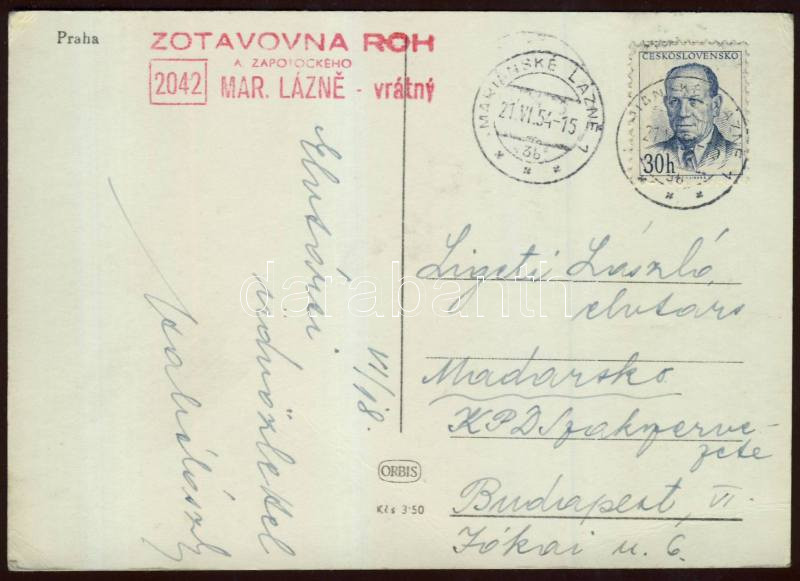 Praha
ZOTAVOVNA ROH
A. ZÁPOTOCKÉHO
2042 MAR. LÁZNĚ - vrátný
MARIÁNSKÉ LÁZNĚ 1
21.VI.54-15
3b
ČESKOSLOVENSKO
30h
MARIÁNSKÉ LÁZNĚ 1
Elvtársi
üdvözlettel
VI/18.
Ligeti László
elvtárs
Madarsko
KPDSzakszerve-
zete
Budapest, VI.
Jókai u. 6.
ORBIS
Kčs 3·50
darabanth